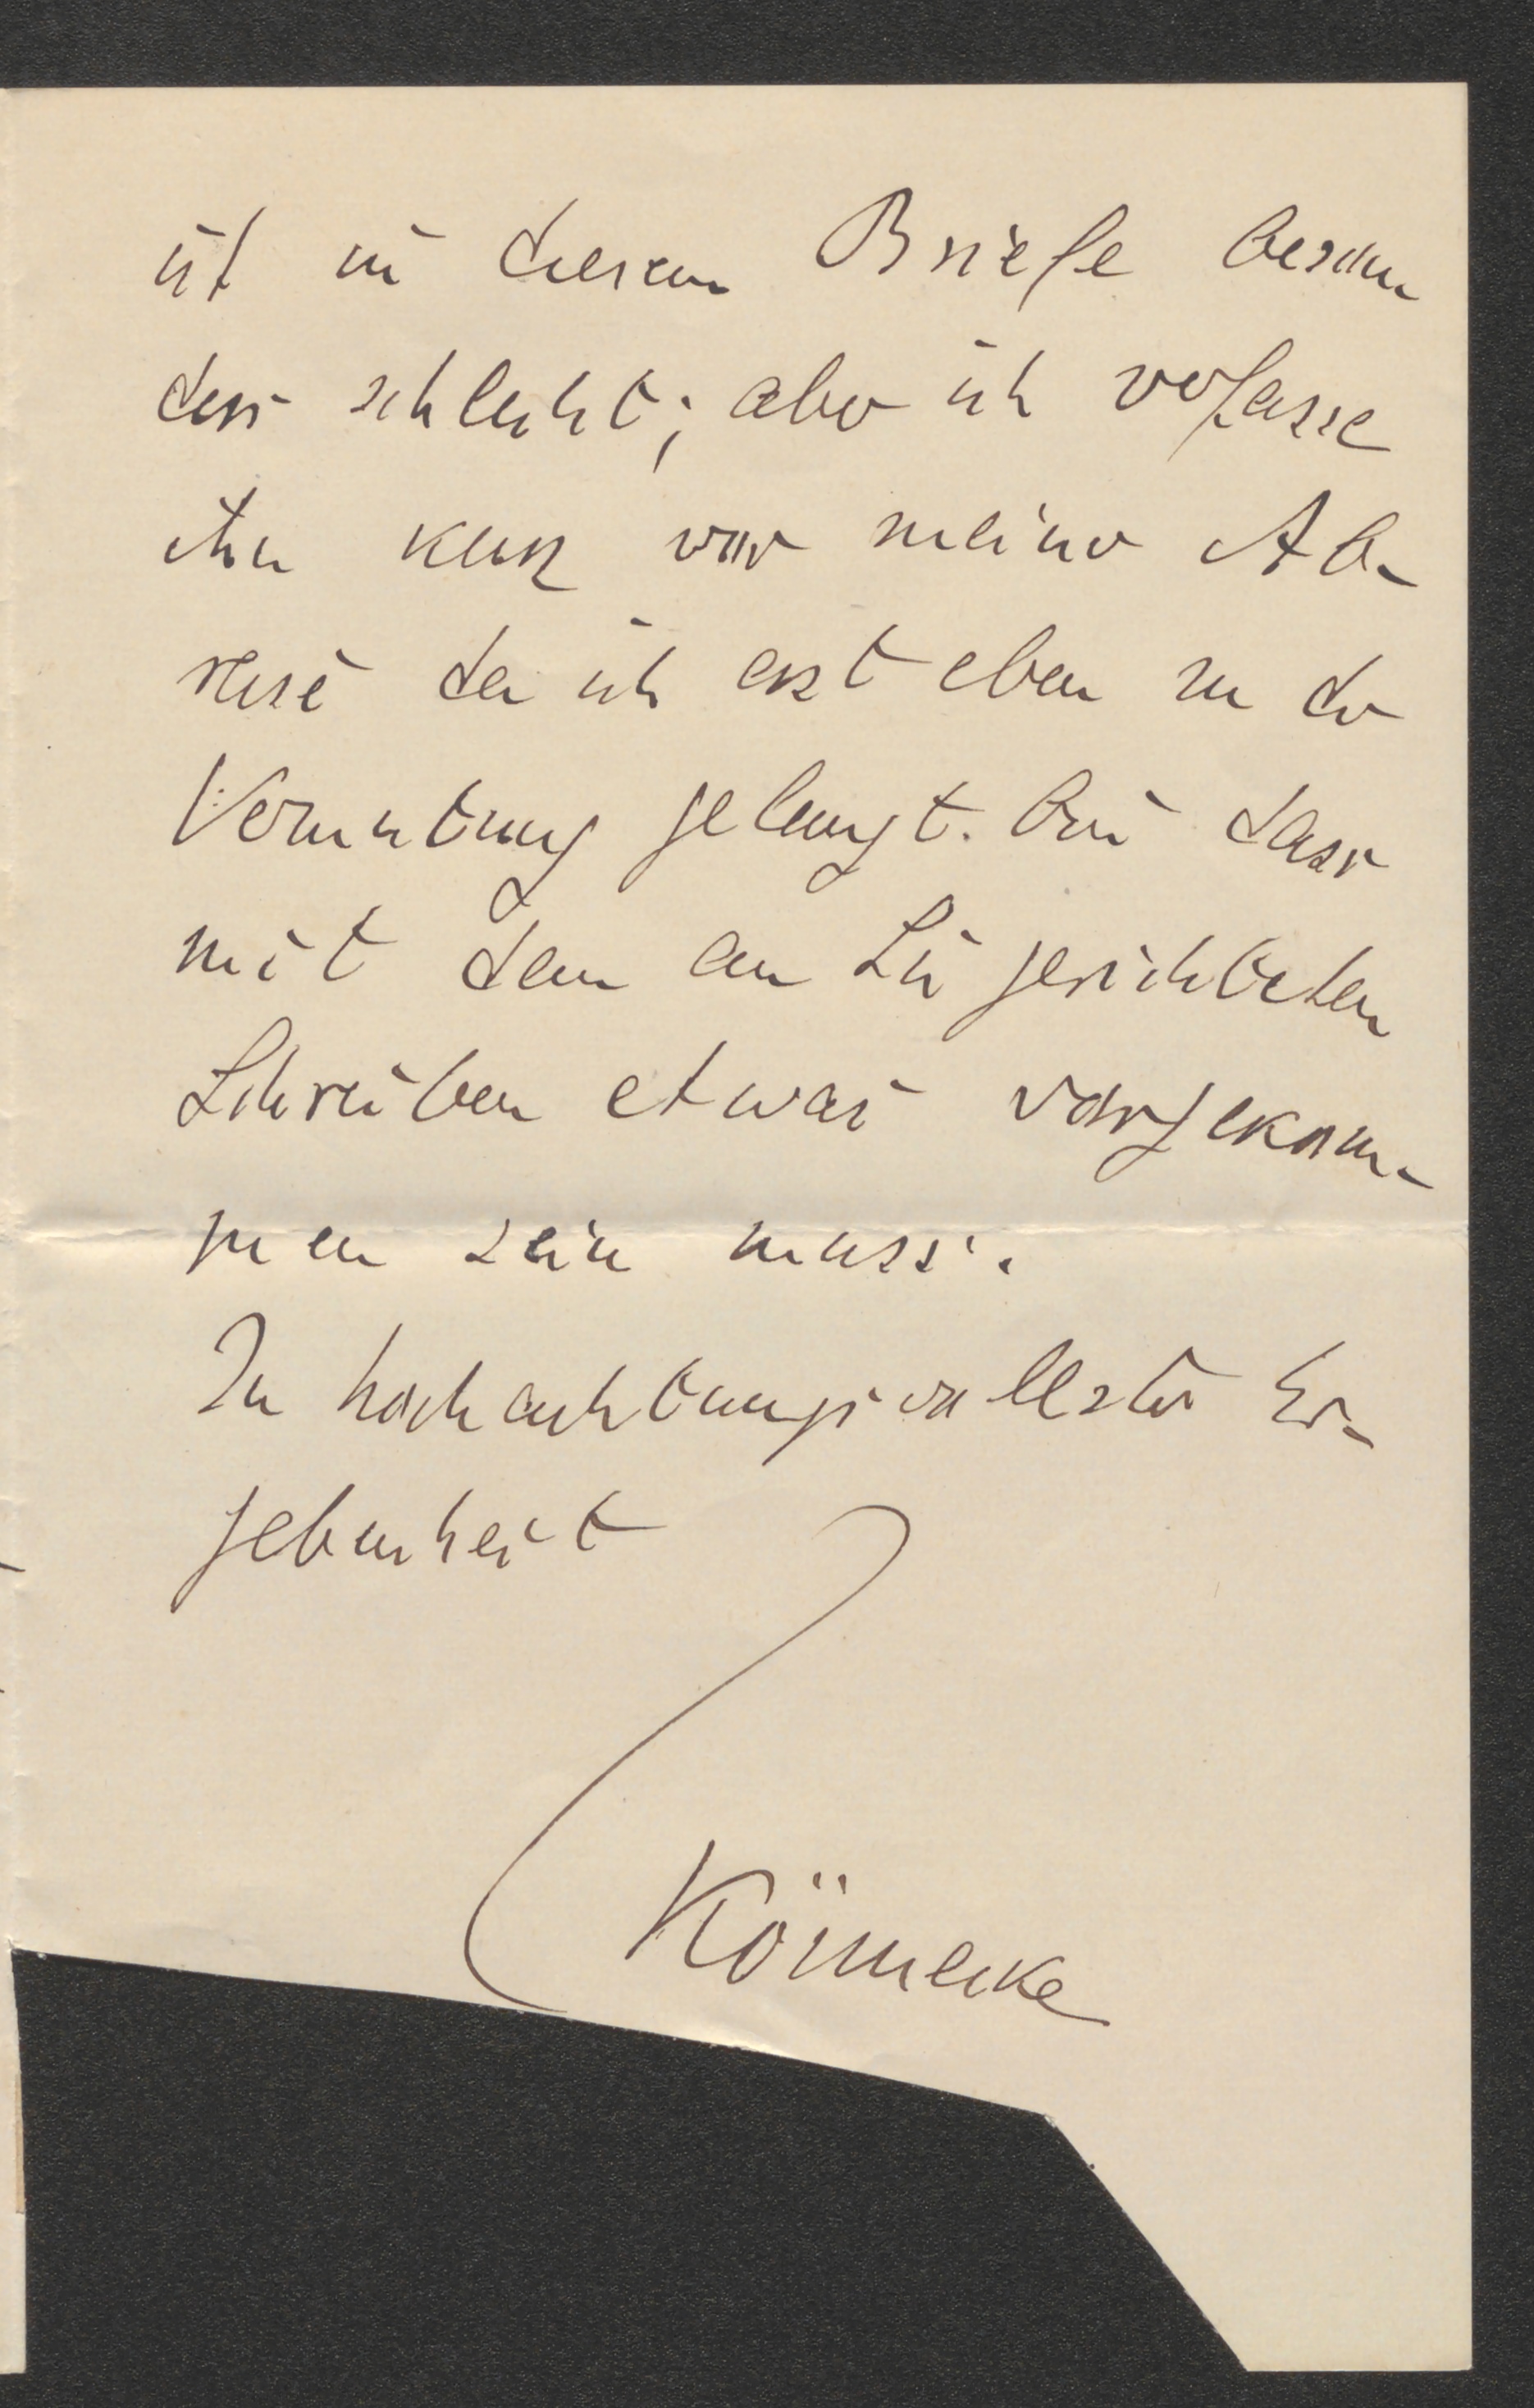 ist in diesem Briefe beson-
ders schlecht; aber ich verfasse
ihn kurz vor meiner Ab-
reise da ich erst eben zu der
Vermutung gelangt bin dass
mit dem an Sie gerichteten
Schreiben etwas vorgekom-
men sein muss.
In hochachtungsvollster Er-
gebenheit
Könnecke